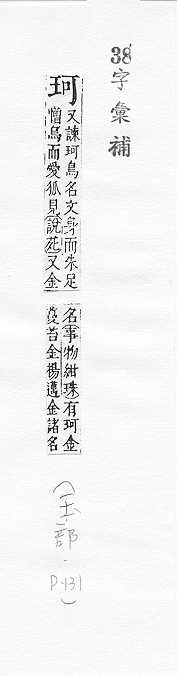 38字彙補
珂
又諫珂鳥名文身而朱足
憎鳥而愛狐見說苑又金
名事物紺珠有珂金
苔金楊邁金諸名
(玉·部·
P.131
)